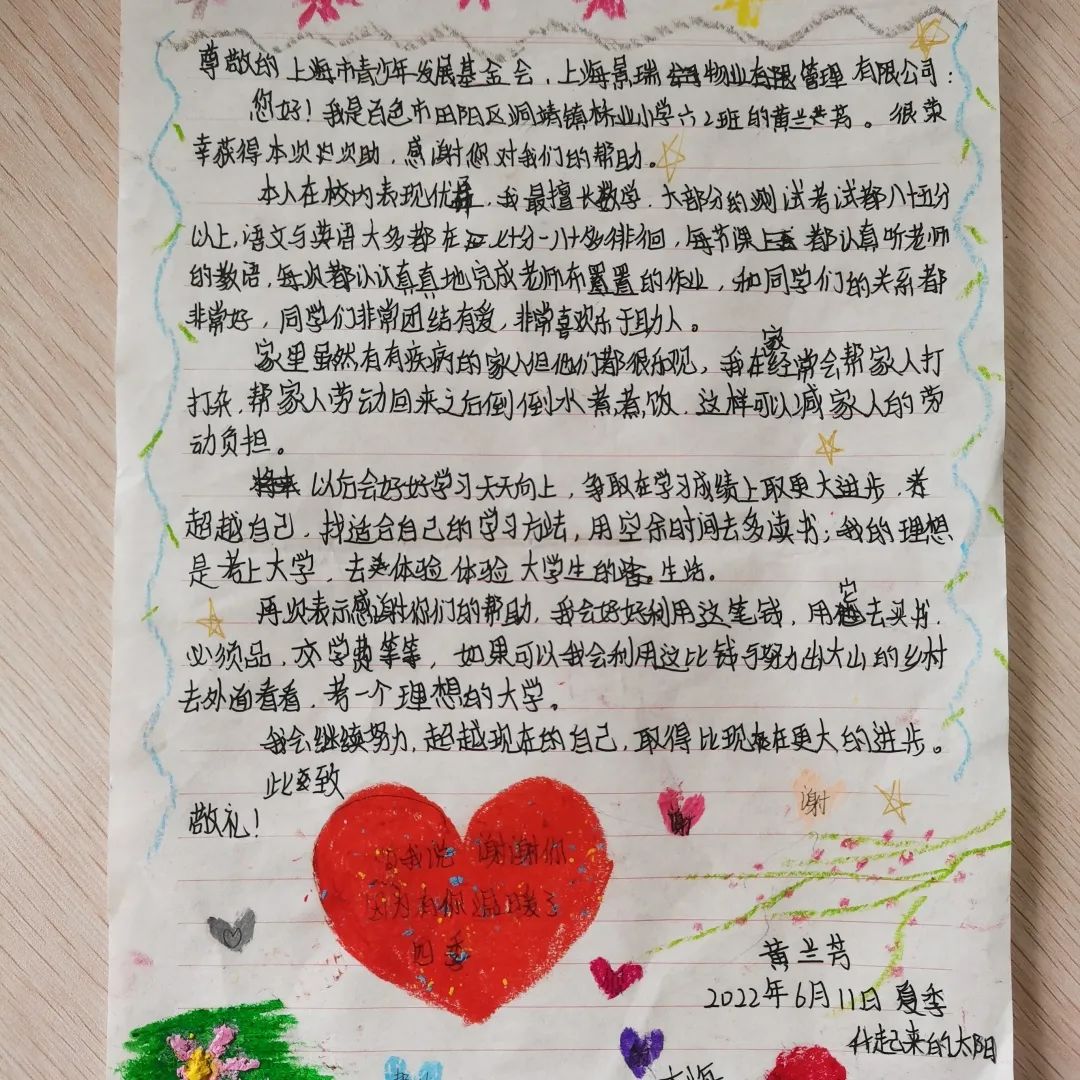 尊敬的上海市青少年发展基金会，上海景瑞物业管理有限公司：
您好！我是百色市田阳区洞靖镇林业小学六2班的黄兰芳。很荣
幸获得本次次助，感谢您对我们的帮助。
本人在校内表现优异，我最擅长数学，大部分的测试考试都八十五分
以上，语文与英语大多都在七十分-八十多徘徊，每节课都认真听老师
的教语，每次都认认真真地完成老师布置的作业，和同学们的关系都
非常好，同学们非常团结有爱，非常喜欢乐于助人。
家里虽然有有疾病的家人但他们都很乐观，我在家经常会帮家人打
打杂，帮家人劳动回来之后倒倒水煮煮饭，这样可以减家人的劳
动负担。
以后会好好学习天天向上，争取在学习成绩上取更大进步，考
超越自己，找适合自己的学习方法，用空余时间去多读书；我的理想
是考上大学，去体验体验大学生的生活。
再次表示感谢你们的帮助，我会好好利用这笔钱，用它去买书，
必须品，交学费等等，如果可以我会利用这比钱与努力出大山的乡村
去外面看看，考一个理想的大学。
我会继续努力，超越现在的自己，取得比现在更大的进步。
此致
敬礼！
谢
谢
我说 谢谢你
因为有你温暖了
四季
黄兰芳
2022年6月11日 夏季
升起来的太阳
上海